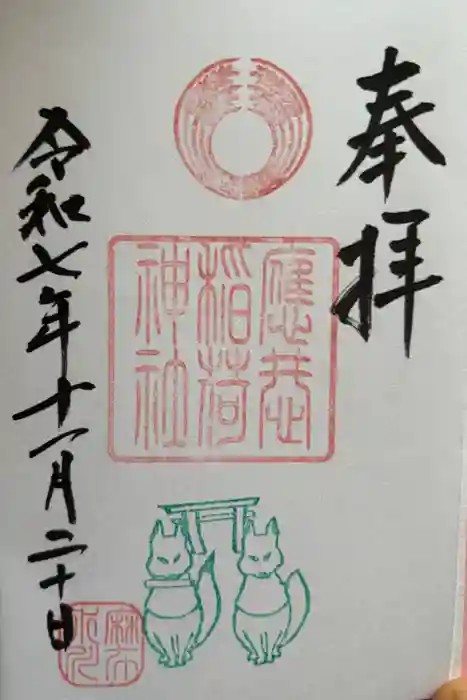 奉拝
應基
稲荷
神社
令和七年十一月二十日